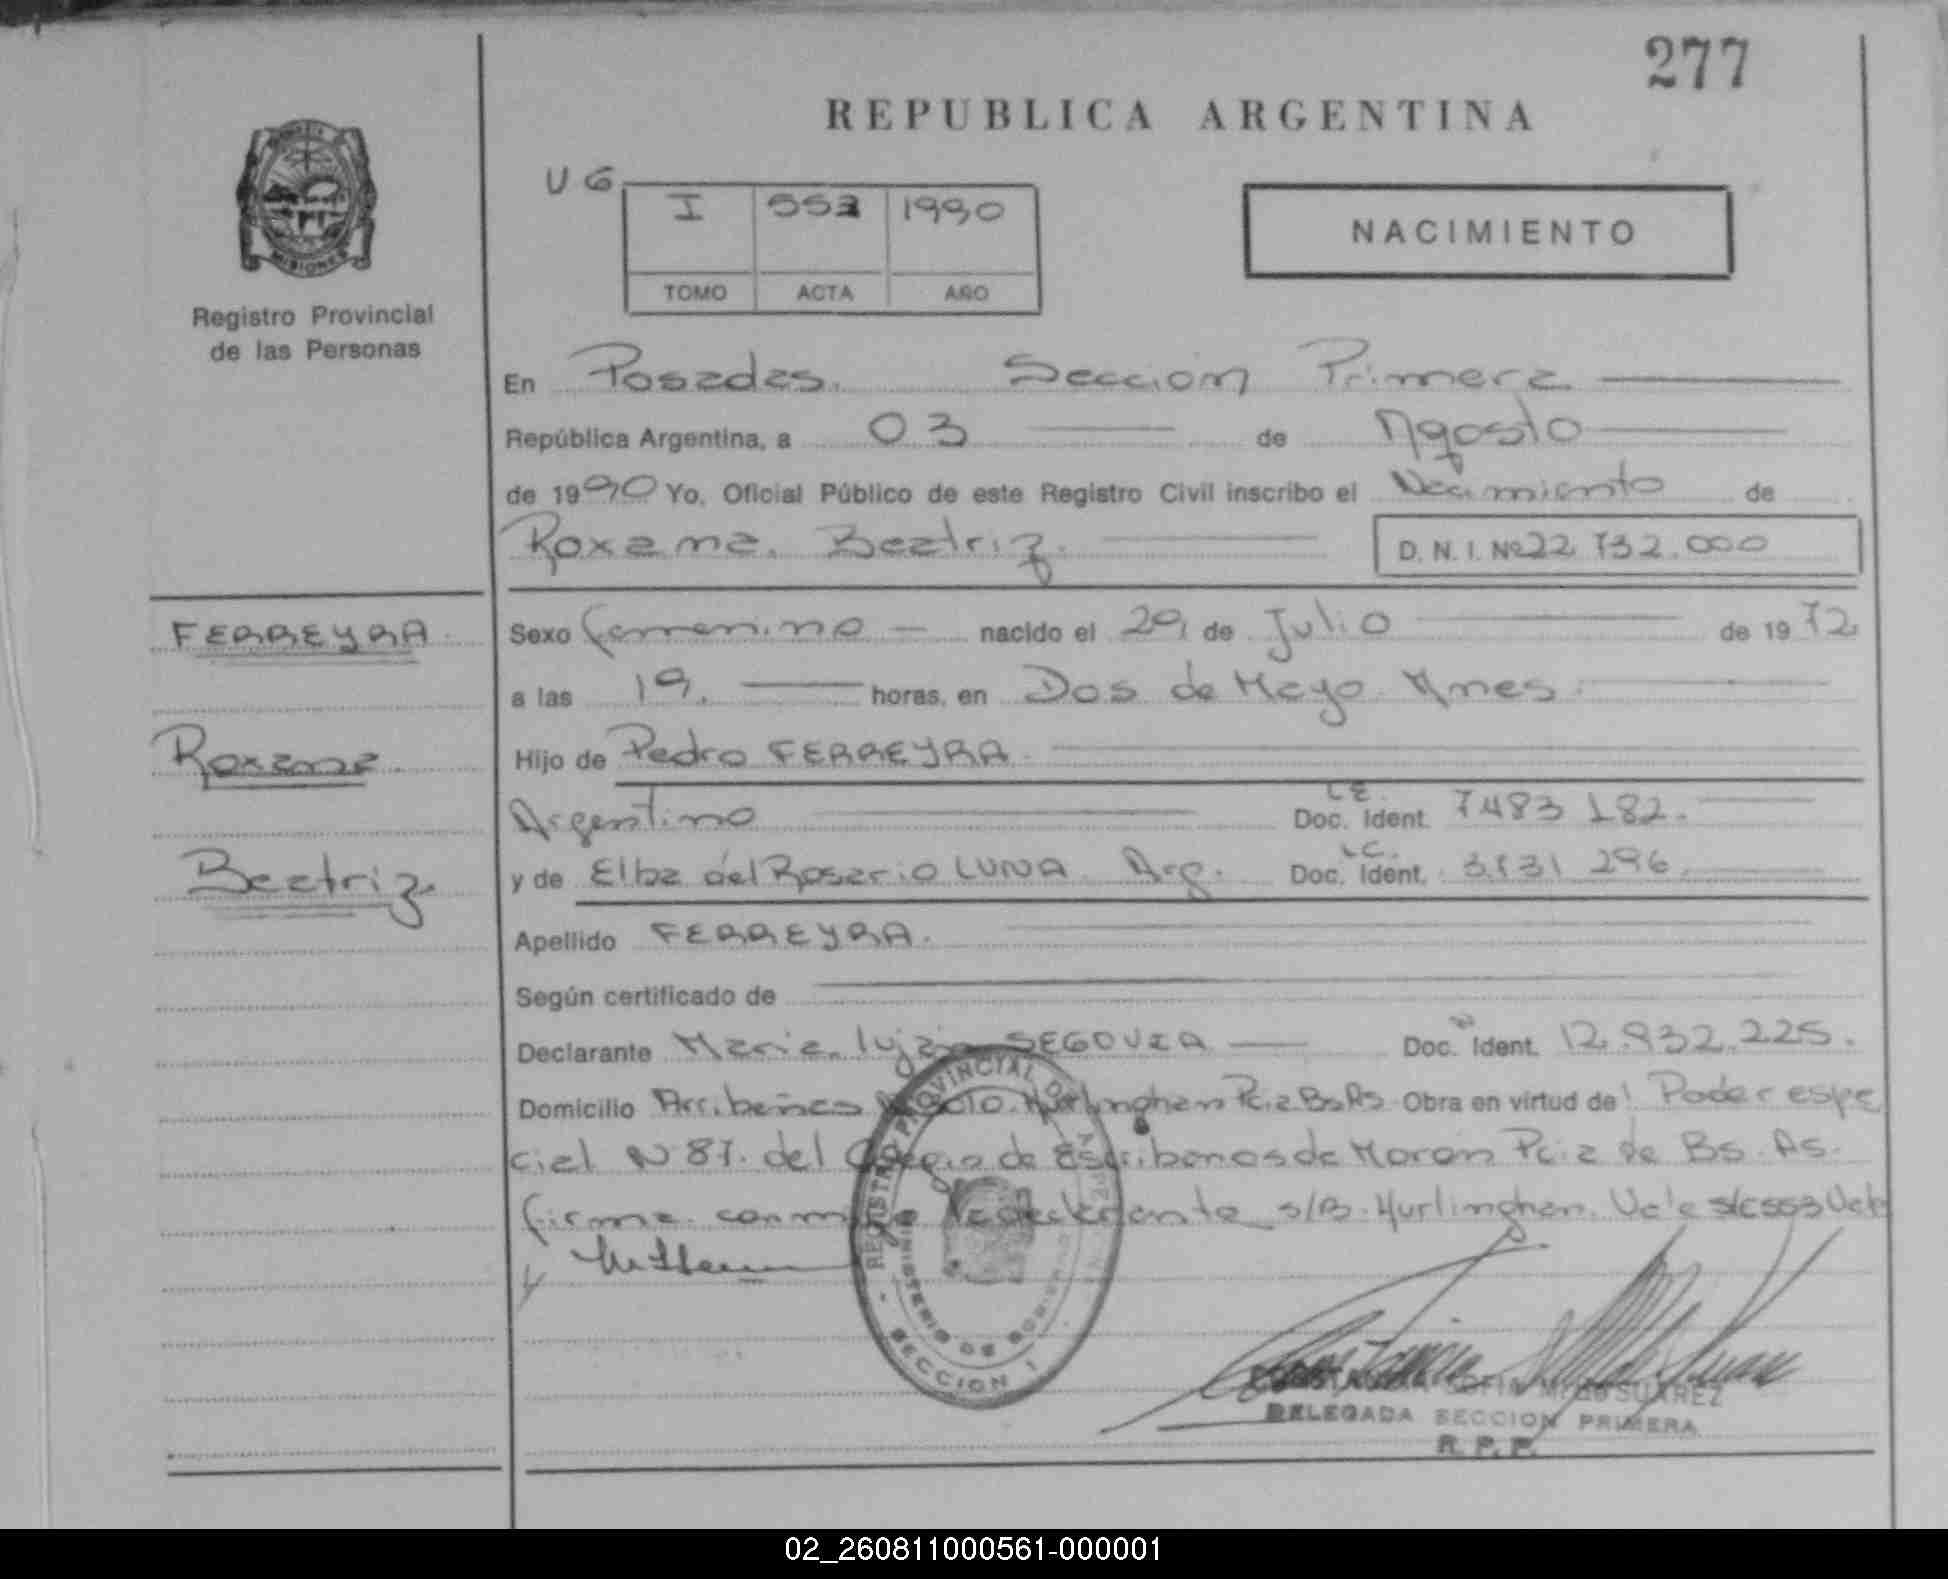 277
REPUBLICA ARGENTINA
U 6
I 553 1990
TOMO ACTA AÑO
NACIMIENTO
MISIONES
Registro Provincial
de las Personas
En Posadas. Sección Primera
República Argentina, a 03 de Agosto
de 1990 Yo, Oficial Público de este Registro Civil inscribo el Nacimiento de
Roxana Beatriz. D. N. I. Nº 22.732.000
FERREYRA.
Roxana
Beatriz.
Sexo femenino nacido el 29 de Julio de 1972
a las 19. horas, en Dos de Mayo Mnes.
Hijo de Pedro FERREYRA.
Argentino L.E. Doc. Ident. 7483 182.
y de Elba del Rosario LUNA Arg. L.C. Doc. Ident. 296
Apellido FERREYRA.
Según certificado de
Declarante Maria Luján SEGOVIA Doc. Ident. 12.932.225.
Domicilio Arribeños Hurlinghan Pcia Bs As Obra en virtud de Poder espe
cial Nº 87. del Colegio de Escribanos de Morón Pcia de Bs. As.
firma conmigo declarante s/B. Hurlinghan. Vale s/c 553 Vale
REGISTRO PROVINCIAL DE LAS PERSONAS
MINISTERIO DE GOBIERNO
SECCION 1
SOFIA SUAREZ
DELEGADA SECCION PRIMERA
R. P. P.
02_260811000561-000001